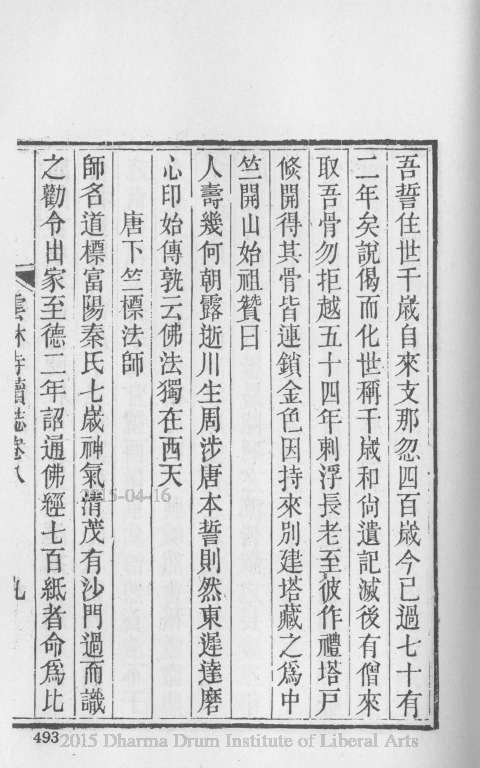 吾誓住世千歲自來支那忽四百歲今已過七十有
二年矣說偈而化世稱千歲和尚遺記滅後有僧來
取吾骨勿拒越五十四年剌浮長老至彼作禮塔戶
倐開得其骨皆連鎖金色因持來別建塔藏之為中
竺開山始祖贊曰
人壽幾何朝露逝川生周涉唐本誓則然東遲達磨
心印始傳孰云佛法獨在西天
唐下竺標法師
師名道標富陽秦氏七歲神氣清茂有沙門過而識
之勸令出家至德二年詔通佛經七百紙者命為比
雲林寺續誌卷八
九
493
2015-04-16
2015 Dharma Drum Institute of Liberal Arts